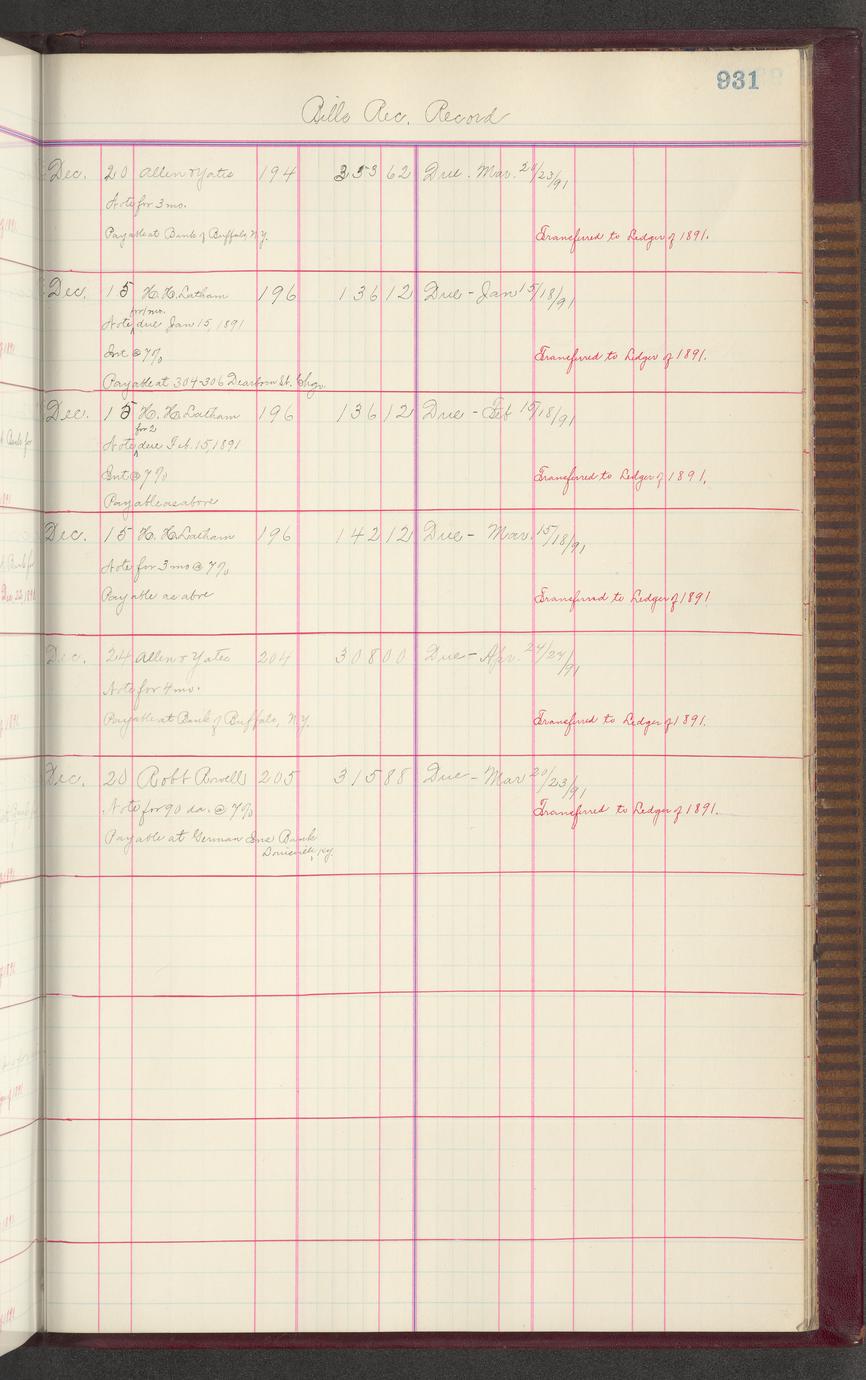 931
Bills Rec. Record
Dec. 20 Allen & Yates 194 353 62 Due. Mar. 20/23/91
Note for 3 mo.
Payable at Bank of Buffalo, N.Y. Transferred to Ledger of 1891.
Dec. 15 H. H. Latham 196 136 12 Due - Jan 15/18/91
for 1 mo.
Note due Jan 15, 1891
Int @ 7% Transferred to Ledger of 1891.
Payable at 304-306 Dearborn St. Chgo.
Dec. 15 H. H. Latham 196 136 12 Due - Feb 15/18/91
for 2
Note due Feb. 15, 1891
Int @ 7% Transferred to Ledger of 1891.
Payable as above
Dec. 15 H. H. Latham 196 142 12 Due - Mar. 15/18/91
Note for 3 mo @ 7%
Payable as abve Transferred to Ledger of 1891
Dec. 24 Allen & Yates 204 308 00 Due - Apr. 24/27/91
Note for 4 mo.
Payable at Bank of Buffalo, N.Y. Transferred to Ledger of 1891.
Dec. 20 Robt Rowell 205 315 88 Due - Mar 20/23/91
Note for 90 da. @ 7% Transferred to Ledger of 1891.
Payable at German Ins Bank
Louisville, Ky.